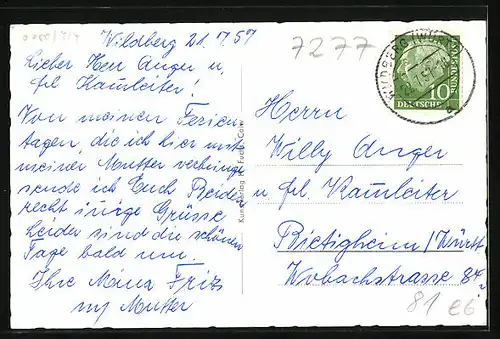 Wildberg 21.7.57
Lieber Herr Anger u.
frl. Kamleiter!
Von meinen Ferien-
tagen, die ich hier mit
meiner Mutter verbringe
sende ich Euch Beiden
recht innige Grüsse
Leider sind die schönen
Tage bald um.
Ihre Mina Fritz
u Mutter
7277
WILDBERG (WÜRTT)
10
DEUTSCHE
Herrn
Willy Anger
u frl. Kamleiter
Bietigheim/Württ
Wobachstrasse 84
81 €6